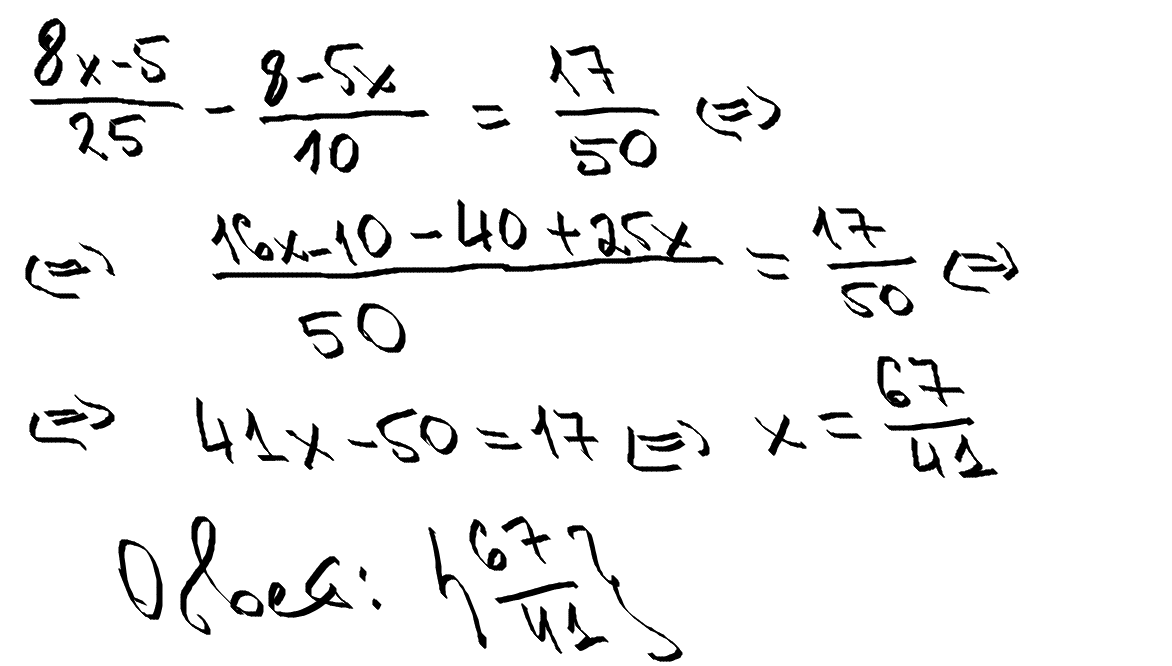 (8x-5)/25 - (8-5x)/10 = 17/50 ⇔
⇔ (16x-10-40+25x)/50 = 17/50 ⇔
⇔ 41x-50=17 ⇔ x=67/41
{67/41}